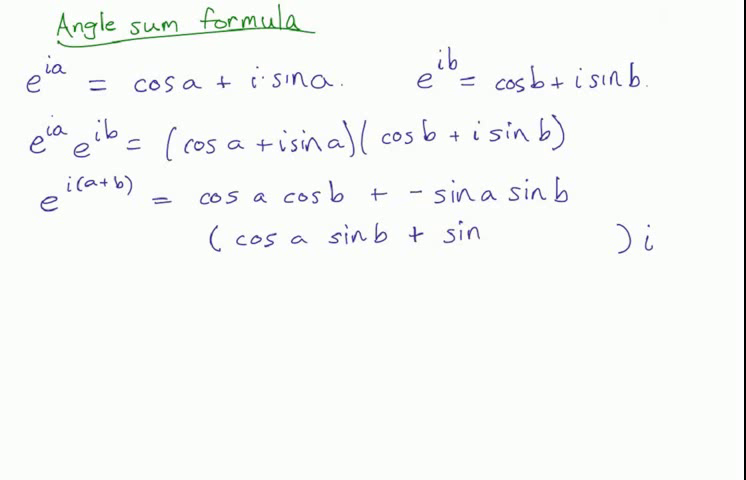 Angle sum formula
e^{ia} = cos a + i·sin a. e^{ib} = cos b + i sin b.
e^{ia} e^{ib} = (cos a + i sin a)(cos b + i sin b)
e^{i(a+b)} = cos a cos b + - sin a sin b
(cos a sin b + sin ) i